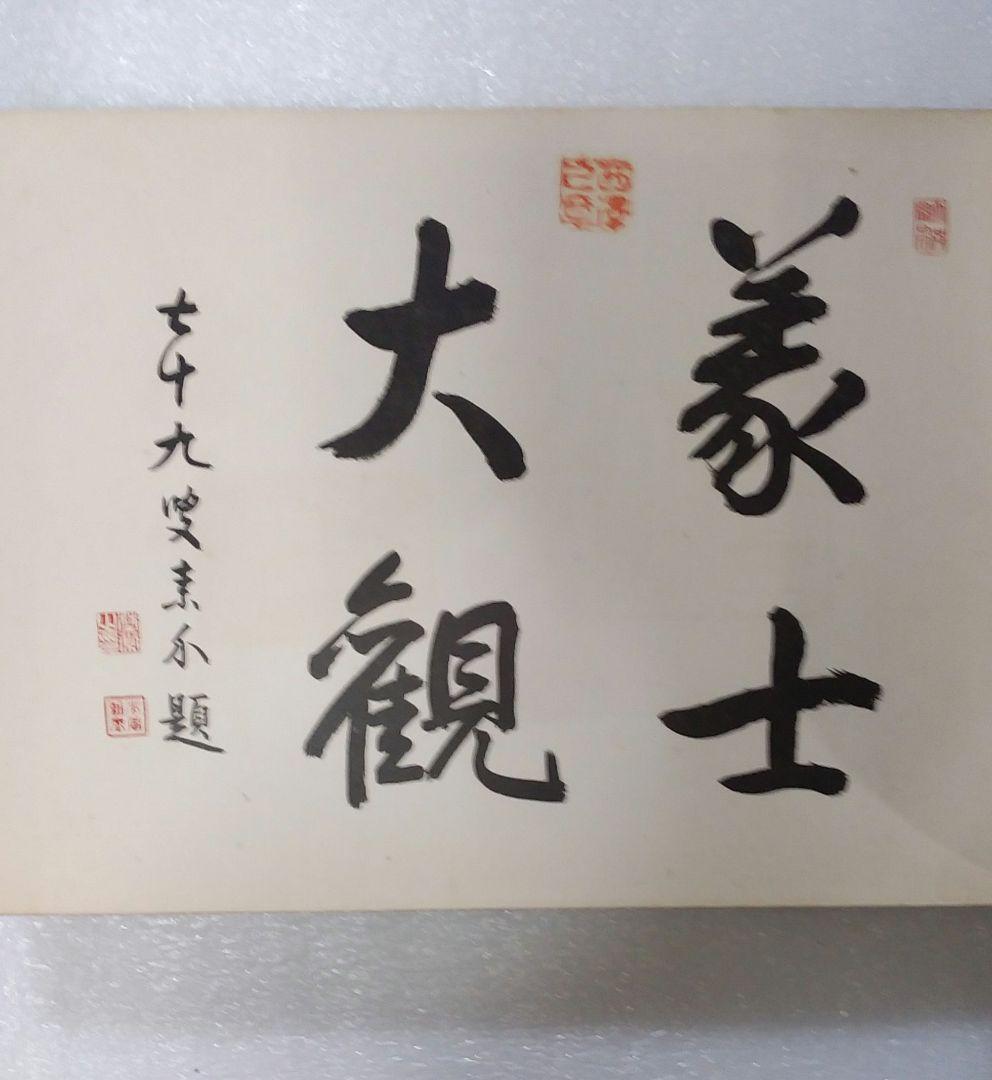 義士
大観
七十九叟素水題